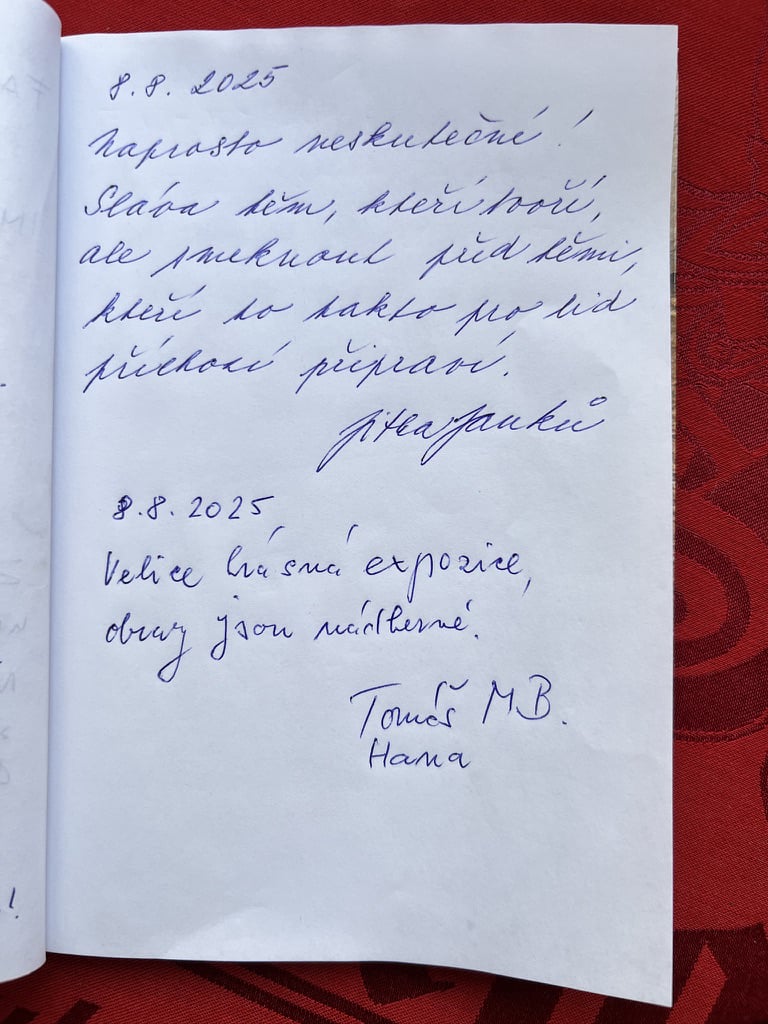 8.8.2025
Naprosto neskutečné!
Sláva těm, kteří tvoří,
ale smeknout před těmi,
kteří to takto pro lid
příchozí připraví.
Jitka Janků
8.8.2025
Velice krásná expozice,
obrazy jsou nádherné.
Tomáš M B.
Hana